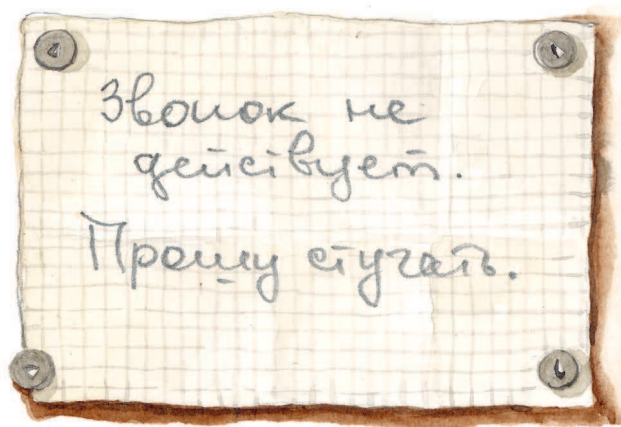 Звонок не
действует.
Прошу стучать.